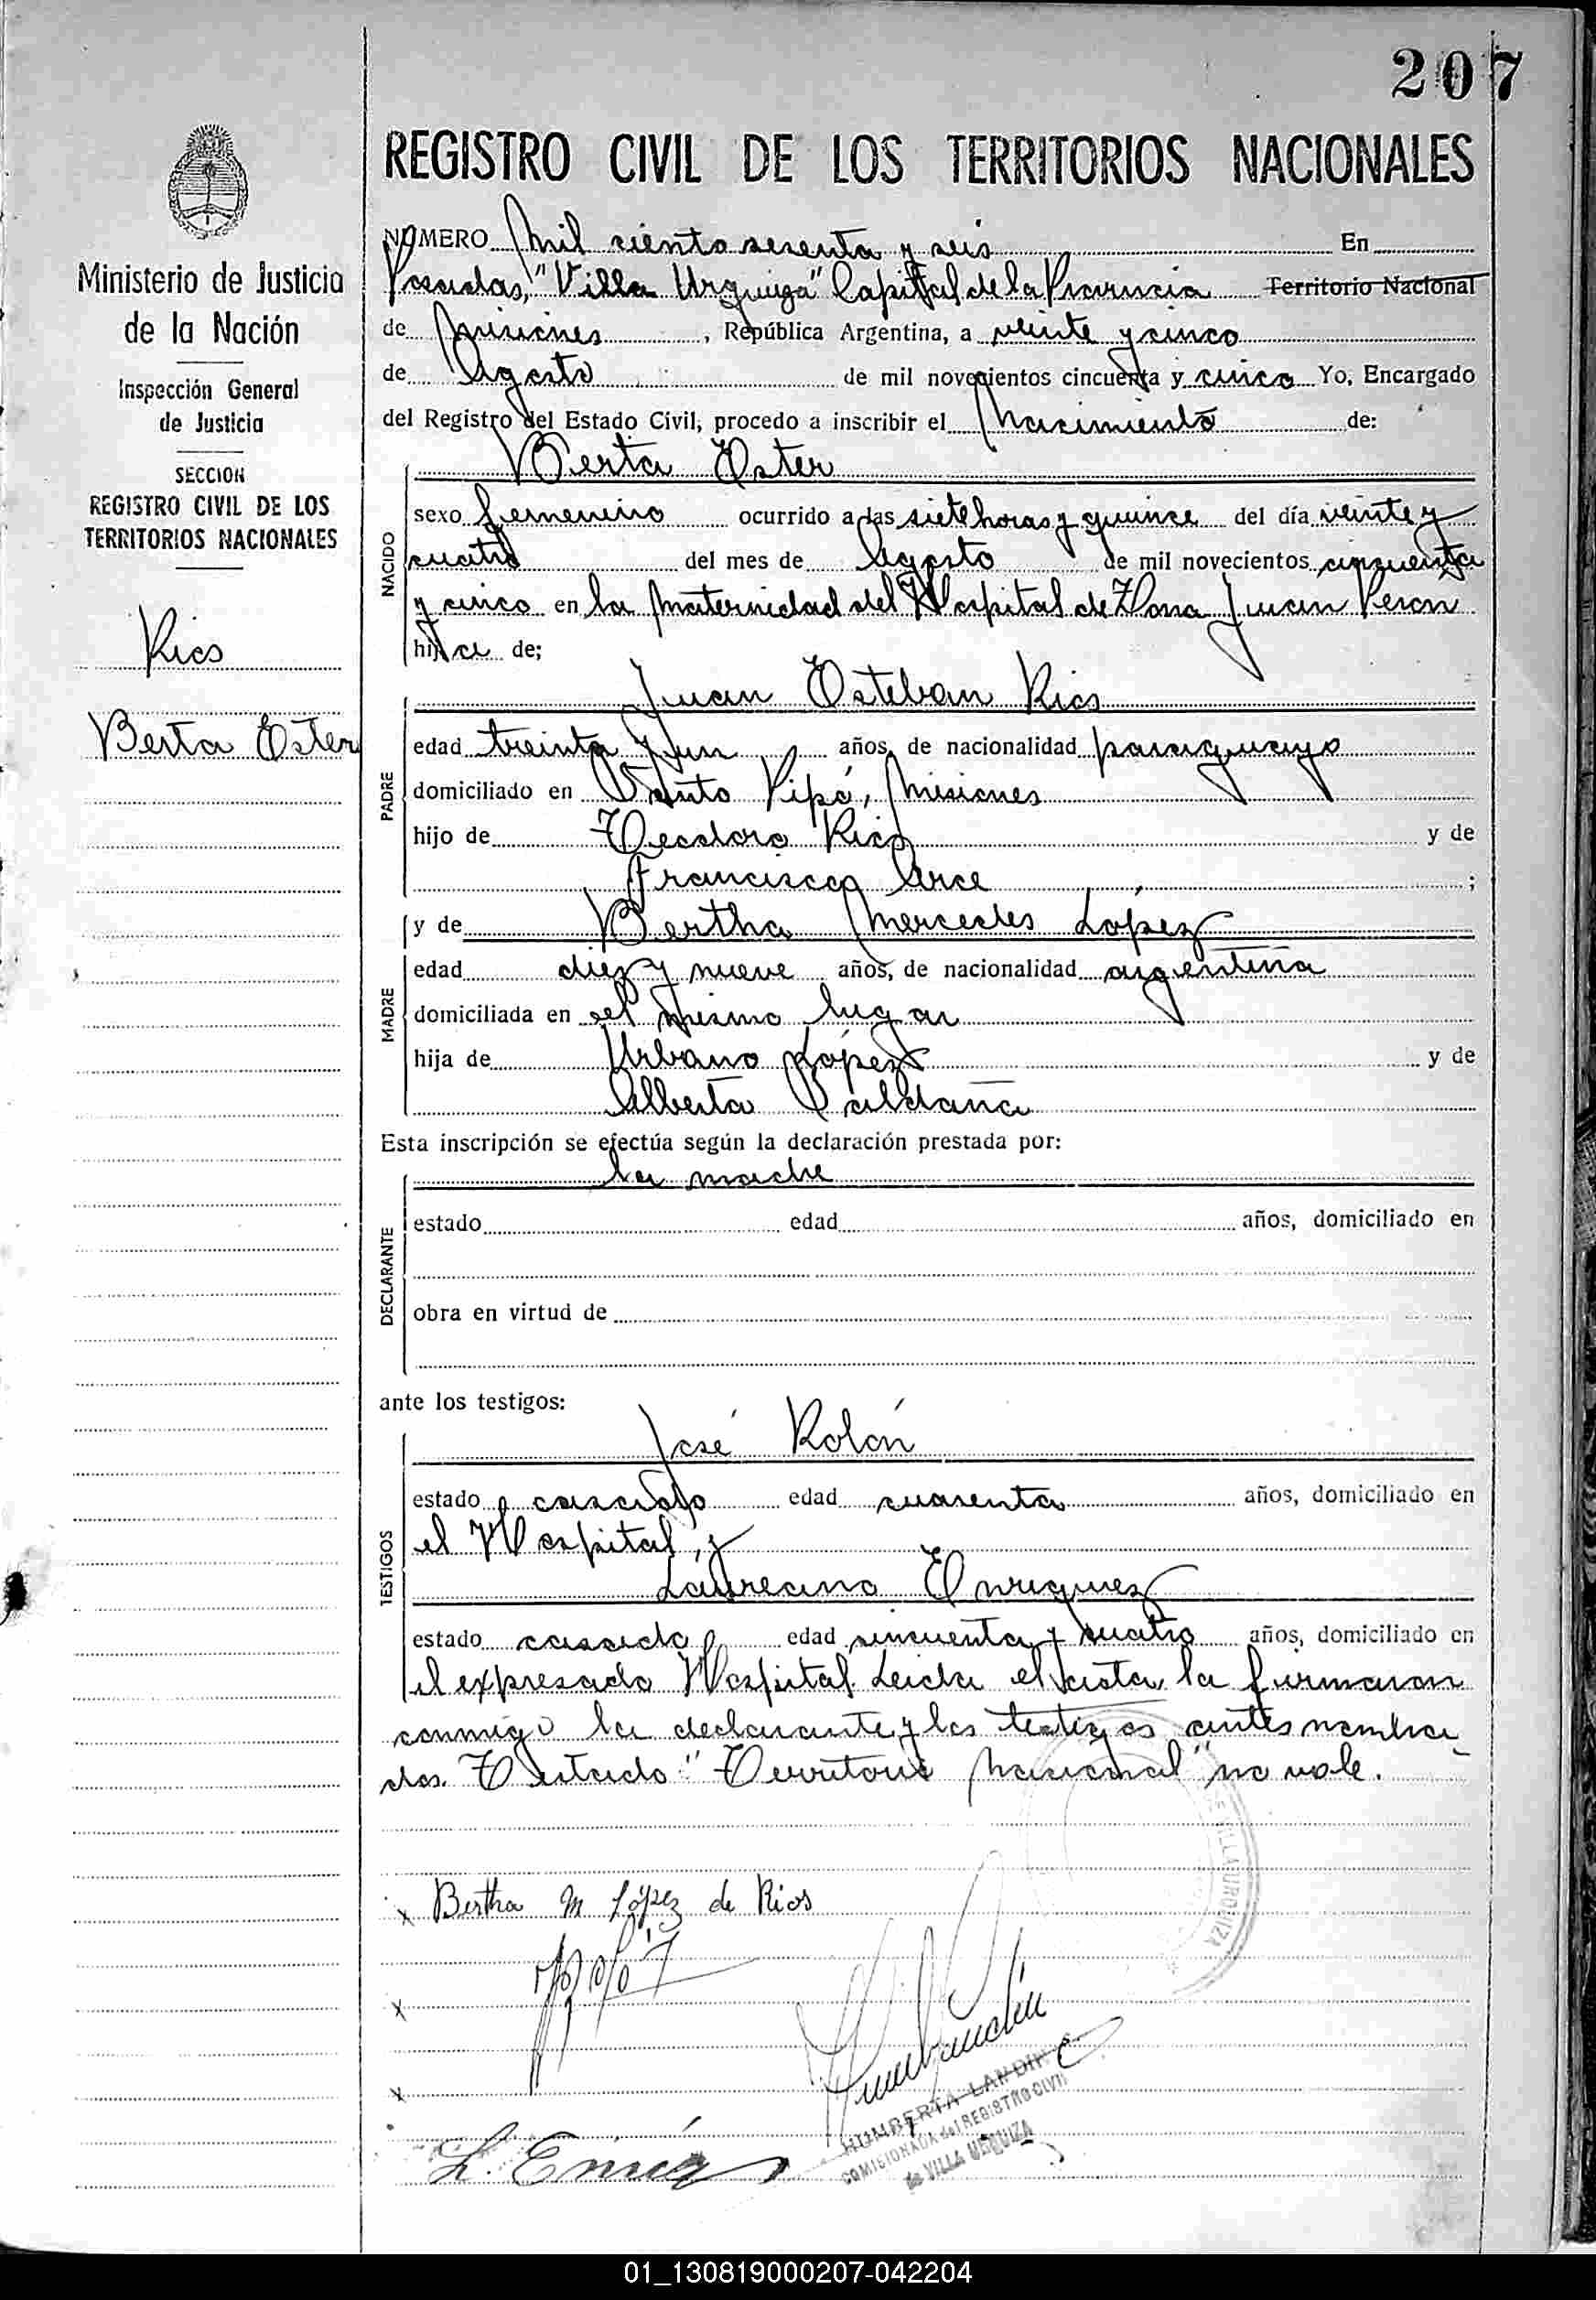 207
REGISTRO CIVIL DE LOS TERRITORIOS NACIONALES
Ministerio de Justicia
de la Nación
Inspección General
de Justicia
SECCION
REGISTRO CIVIL DE LOS
TERRITORIOS NACIONALES
Rios
Berta Ester
NÚMERO Mil ciento sesenta y seis En
Posadas, "Villa Urquiza" Capital de la Provincia Territorio Nacional
de Misiones, República Argentina, a veinte y cinco
de Agosto de mil novecientos cincuenta y cinco Yo, Encargado
del Registro del Estado Civil, procedo a inscribir el Nacimiento de:
NACIDO
Berta Ester
sexo femenino ocurrido a las siete horas y quince del día veinte y
cuatro del mes de Agosto de mil novecientos cincuenta
y cinco en la Maternidad del Hospital de Zona Juan Peron
hija de;
PADRE
Juan Esteban Rios
edad treinta y un años, de nacionalidad paraguayo
domiciliado en Santo Pipó, Misiones
hijo de Teodoro Rios y de
Francisca Arce ;
MADRE
y de Bertha Mercedes López
edad diez y nueve años, de nacionalidad argentina
domiciliada en el mismo lugar
hija de Urbano López y de
Alberta Saldaña
Esta inscripción se efectúa según la declaración prestada por:
DECLARANTE
la madre
estado edad años, domiciliado en
obra en virtud de
ante los testigos:
TESTIGOS
José Rolón
estado casado edad cuarenta años, domiciliado en
el Hospital, y
Laureano Enriquez
estado casado edad sincuenta y cuatro años, domiciliado en
el expresado Hospital Leida el acta, la firmaron
conmigo la declarante y los testigos antes nombra
dos. Testado "Territorio Nacional" no vale.
DE VILLA URQUIZA
x Bertha M López de Rios
x
x
L. Enriq
HUMBERTA LANDIN
COMISIONADA del REGISTRO CIVIL
de VILLA URQUIZA
01_130819000207-042204